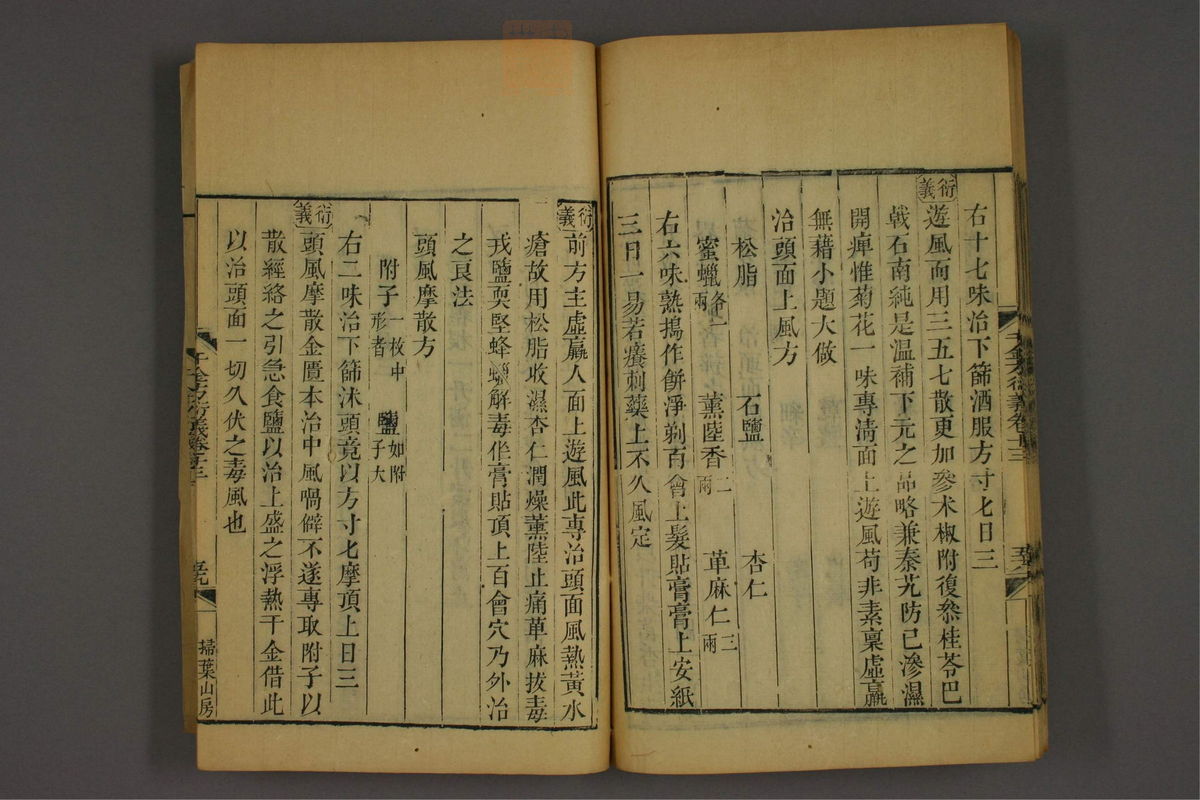 右十七味治下篩酒服方寸匕日三
衍義
遊風而用三五七散更加參朮椒附復叅桂苓巴
戟石南純是溫補下元之品略兼秦艽防已滲濕
開痺惟菊花一味專淸面上遊風苟非素稟虛羸
無藉小題大做
治頭面上風方
松脂 石鹽 杏仁
蜜蠟各一兩 薰陸香二兩 萆麻仁三兩
右六味熟搗作餠淨剃百會上髮貼膏膏上安紙
三日一易若癢刺藥上不久風定
衍義
前方主虛羸人面上遊風此專治頭面風熱黃水
瘡故用松脂收濕杏仁潤燥薰陸止痛萆麻拔毒
戎鹽耎堅蜂蠟解毒作膏貼頂上百會穴乃外治
之良法
頭風摩散方
附子一枚中形者 鹽如附子大
右二味治下篩沐頭竟以方寸匕摩頂上日三
衍義
頭風摩散金匱本治中風喎僻不遂專取附子以
散經絡之引急食鹽以治上盛之浮熱千金借此
以治頭面一切久伏之毒風也
千金方衍義卷十三
五九
掃葉山房